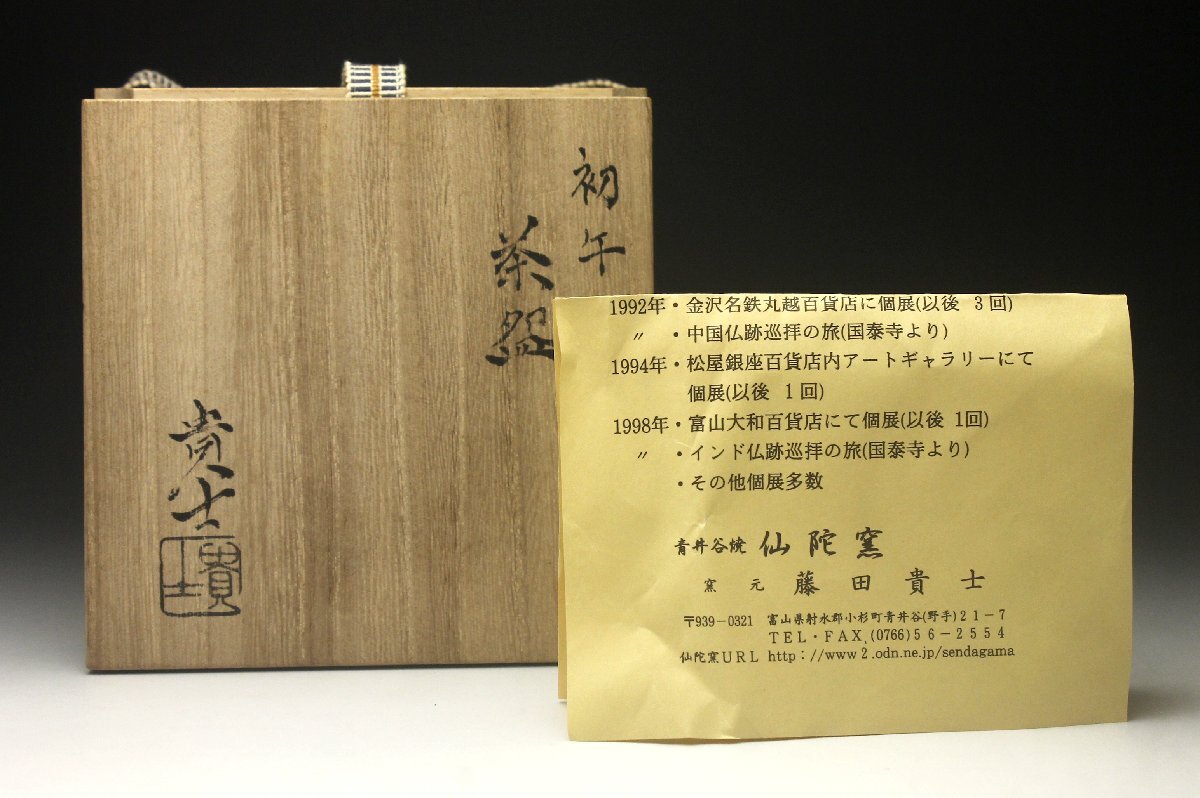 初午
茶盌
貴士
貴士
1992年・金沢名鉄丸越百貨店に個展(以後 3回)
〃 ・中国仏跡巡拝の旅(国泰寺より)
1994年・松屋銀座百貨店内アートギャラリーにて
個展(以後 1回)
1998年・富山大和百貨店にて個展(以後 1回)
〃 ・インド仏跡巡拝の旅(国泰寺より)
・その他個展多数
青井谷焼 仙陀窯
窯元 藤田貴士
〒939-0321 富山県射水郡小杉町青井谷(野手)21-7
TEL・FAX.(0766)56-2554
仙陀窯URL http://www2.odn.ne.jp/sendagama